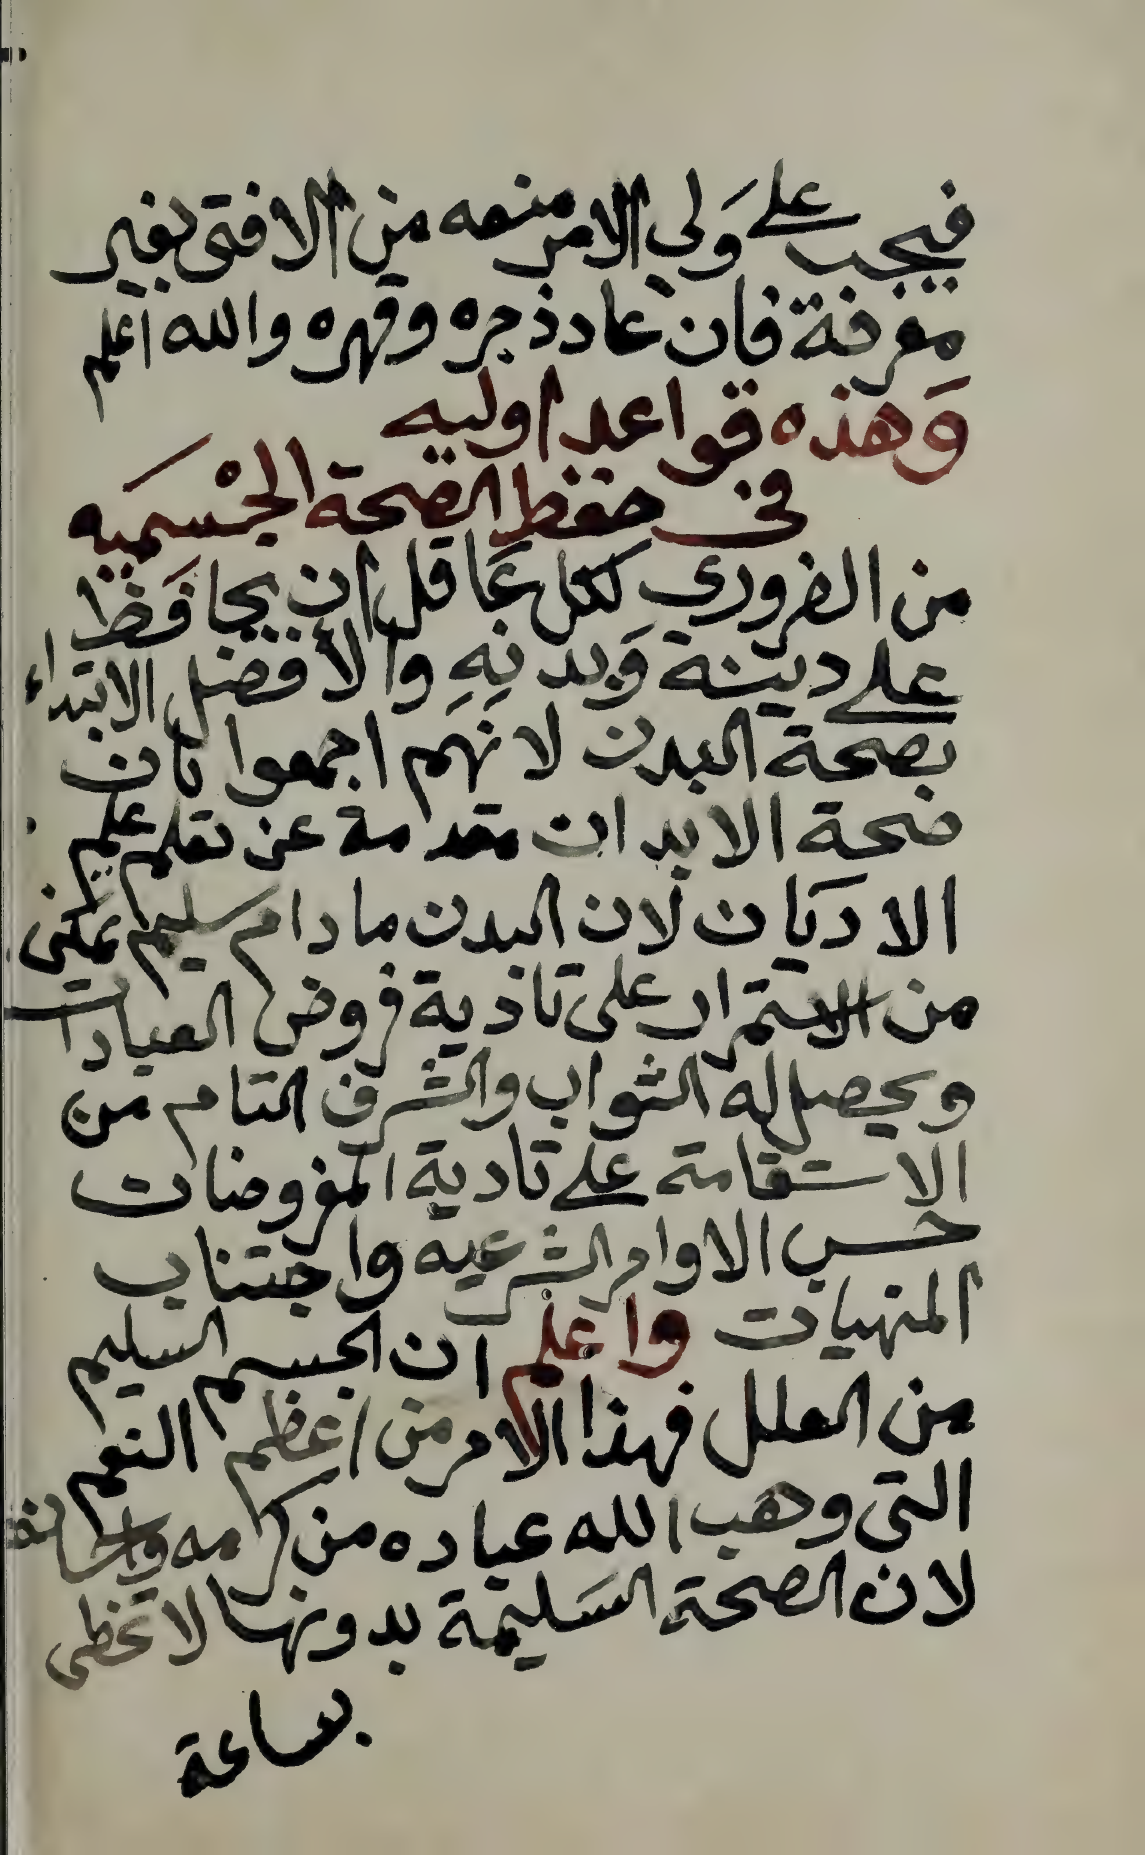 فيجب على وَلي الامر منعه من الافتى بغير
معرفة فان عاد ذجره وقهره والله اعلم
وَهذه قواعد اوليه
فى حفظ الصحة الجْسميه
من الضروري لكل عَاقل ان يحافَظ
على دينة وَبدنِهِ والأفضل الابتداء
بصحة البدن لانَهم اجمعوا بان
صحة الابدان مقدمة عن تعلم علم
الاديَان لان البدن مادام سليم يمكن
من الاستمرار على تاذية فروض العبادات
ويحصل له الثواب والشرف التام من
الاستقامة على تادية المفروضات
حسب الاوامر الشرعيه واجتناب
المنهيات واعلم ان الجسم السليم
من العلل فهذا الامر من اعظم النعم
التى وهب الله عباده من كرامه واحسانه
لان الصحة السَليمة بدونها لا تحظى
بساعة